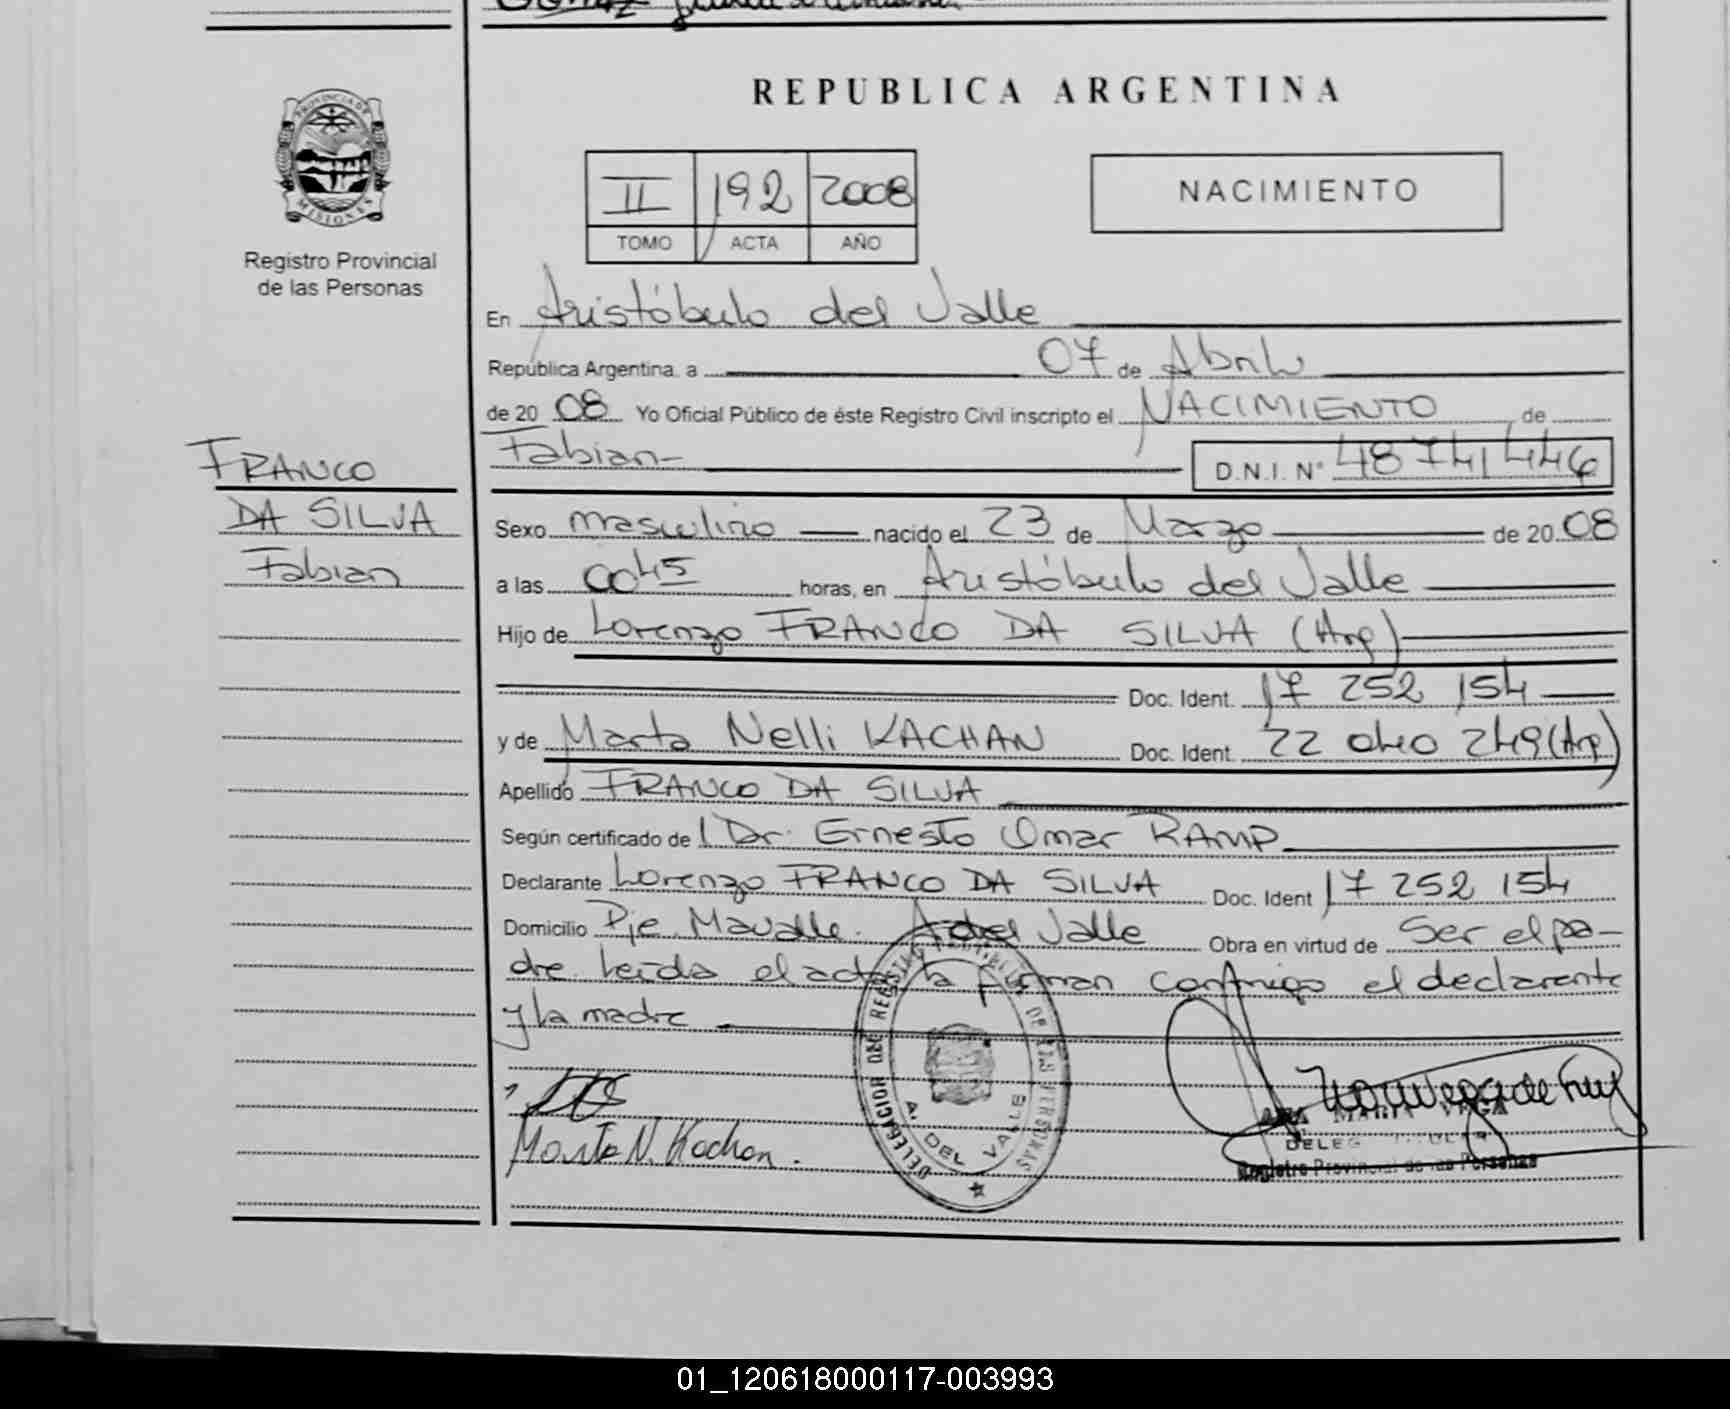 REPUBLICA ARGENTINA
PROVINCIA DE MISIONES
Registro Provincial
de las Personas
II 192 2008
TOMO ACTA AÑO
NACIMIENTO
En Aristóbulo del Valle
República Argentina, a 07 de Abril
de 20 08 Yo Oficial Público de éste Registro Civil inscripto el NACIMIENTO de
Fabian D.N.I. N° 48 741 446
FRANCO
DA SILVA
Fabian
Sexo masculino nacido el 23 de Marzo de 20 08
a las 00 45 horas, en Aristóbulo del Valle
Hijo de Lorenzo FRANCO DA SILVA (Arg)
Doc. Ident. 17 252 154
y de Marta Nelli KACHAN Doc. Ident. 22 040 249 (Arg)
Apellido FRANCO DA SILVA
Según certificado de l Dr. Ernesto Omar RAMP
Declarante Lorenzo FRANCO DA SILVA Doc. Ident 17 252 154
Domicilio Pje. Mavalle. A del Valle Obra en virtud de Ser el pa-
dre. Leída el acta la firman conmigo el declarante
y la madre
Marta N. Kachan.
DELEGACION DEL REGISTRO DE LAS PERSONAS
A. DEL VALLE
Registro Provincial de las Personas
01_120618000117-003993